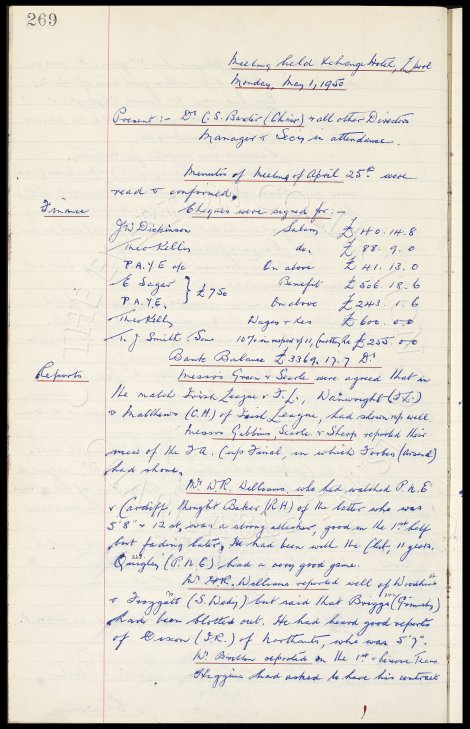 269
Meeting held Xchange Hotel, L'pool
Monday, May 1, 1950
Present :- Dr. C.S. Baxter (Chair) & all other Directors
Manager & Secy in attendance.
Minutes of Meeting of April 25th were
read & confirmed.
Finance
Cheques were signed for :-
J.W Dickinson Salary £140.14.8
Theo Kelly do. £ 88. 9. 0
P.A.Y.E a/c On above £ 41. 13. 0
E Sagar } £750 Benefit £506. 18. 6
P.A.Y.E. On above £243. 1. 6
Theo Kelly Wages & £600. 0.0
T. J. Smith & Son 10% in respect of £255. 0.0
Bank Balance £3369. 17. 7 Dr
Reports
Messrs Green & Searle were agreed that in
the match Irish League v F.L., Wainwright (F.L.)
& Matthews (C.H) of Irish League, had shown up well.
Messrs Gibbins, Searle & Sharp reported their
views of the F.A. Cup Final, in which Forbes (Arsenal)
had shone.
Mr. W.R. Williams, who had watched P.N.E
v Cardiff, thought Baker (R.H) of the latter who was
5'8" & 12 st, was a strong attacker, good in the 1st half
but fading later. He had been with the Club, 11 years.
Quigley (P.N.E) had a very good game.
Mr H.R. Williams reported well of
& Froggatt (S. Wedy) but said that Briggs (Grimsby)
had been blotted out. He had heard good reports
of Dixon (I.R.) of Northants, who was 5'7".
Mr Bratton reported on the 1st & Reserve Teams
Higgins had asked to have his contract